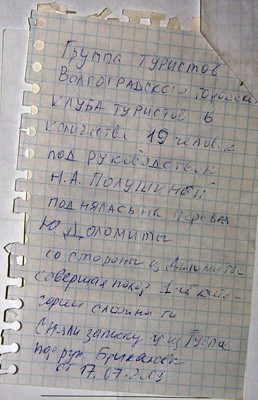 Группа туристов
Волгоградского городск
клуба туристов в
количестве 19 человек
под руководством
Н.А. Полушкиной
поднялась на перевал
Ю. Доломиты
со стороны л. Доломиты
совершая поход 1-й кате-
гории сложности
Сняли записку группы
под рук.
от 17.07.2009